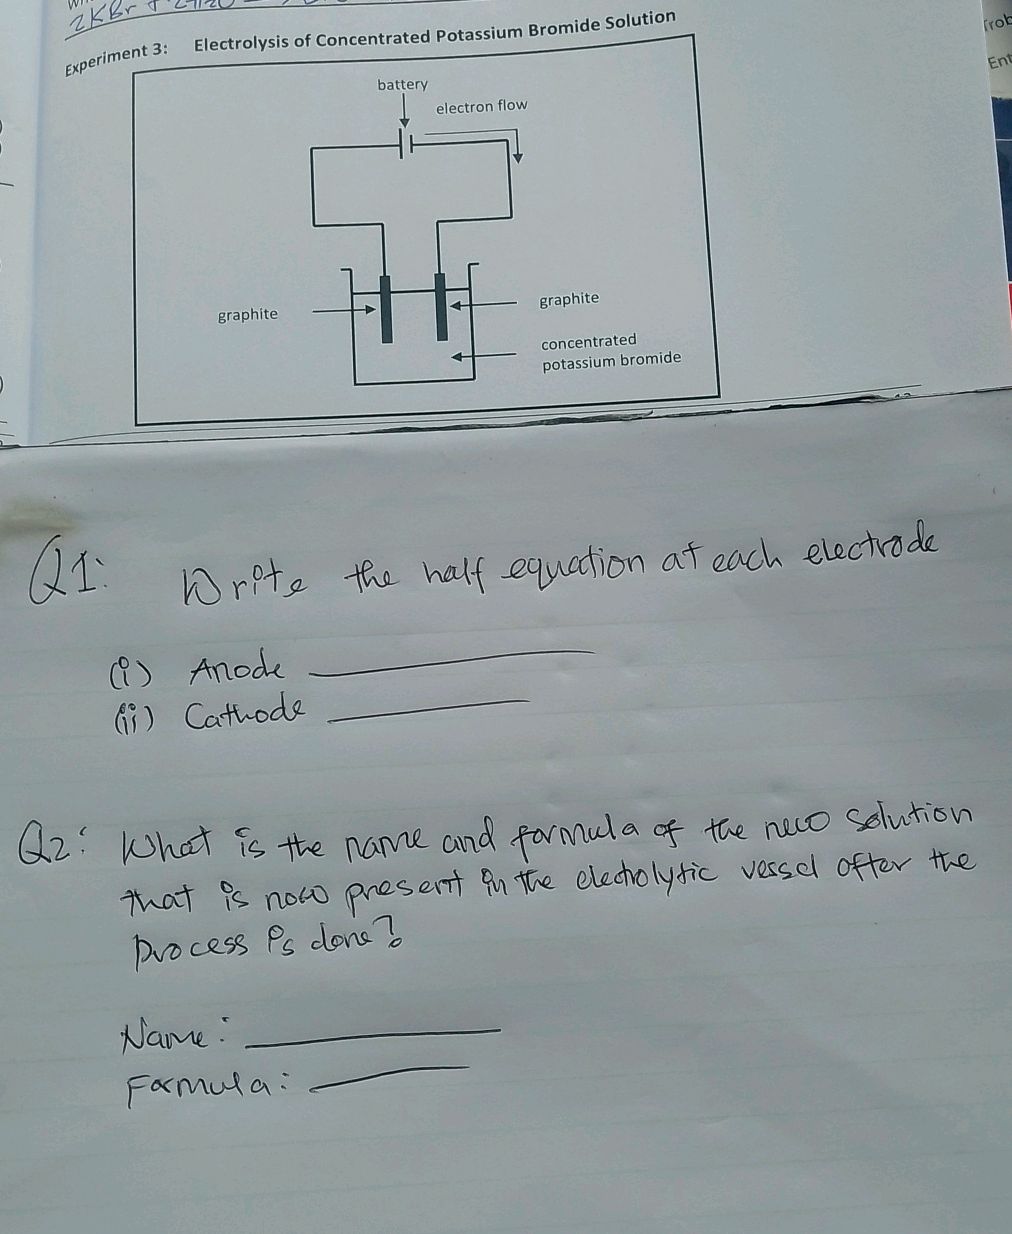 2KBr +
Experiment 3: Electrolysis of Concentrated Potassium Bromide Solution
Ent
battery
electron flow
graphite
graphite
concentrated
potassium bromide
Q1: Write the half equation at each electrode
(i) Anode
(ii) Cathode
Q2: What is the name and formula of the new solution
that is now present in the electrolytic vessel after the
process is done?
Name:
Formula: